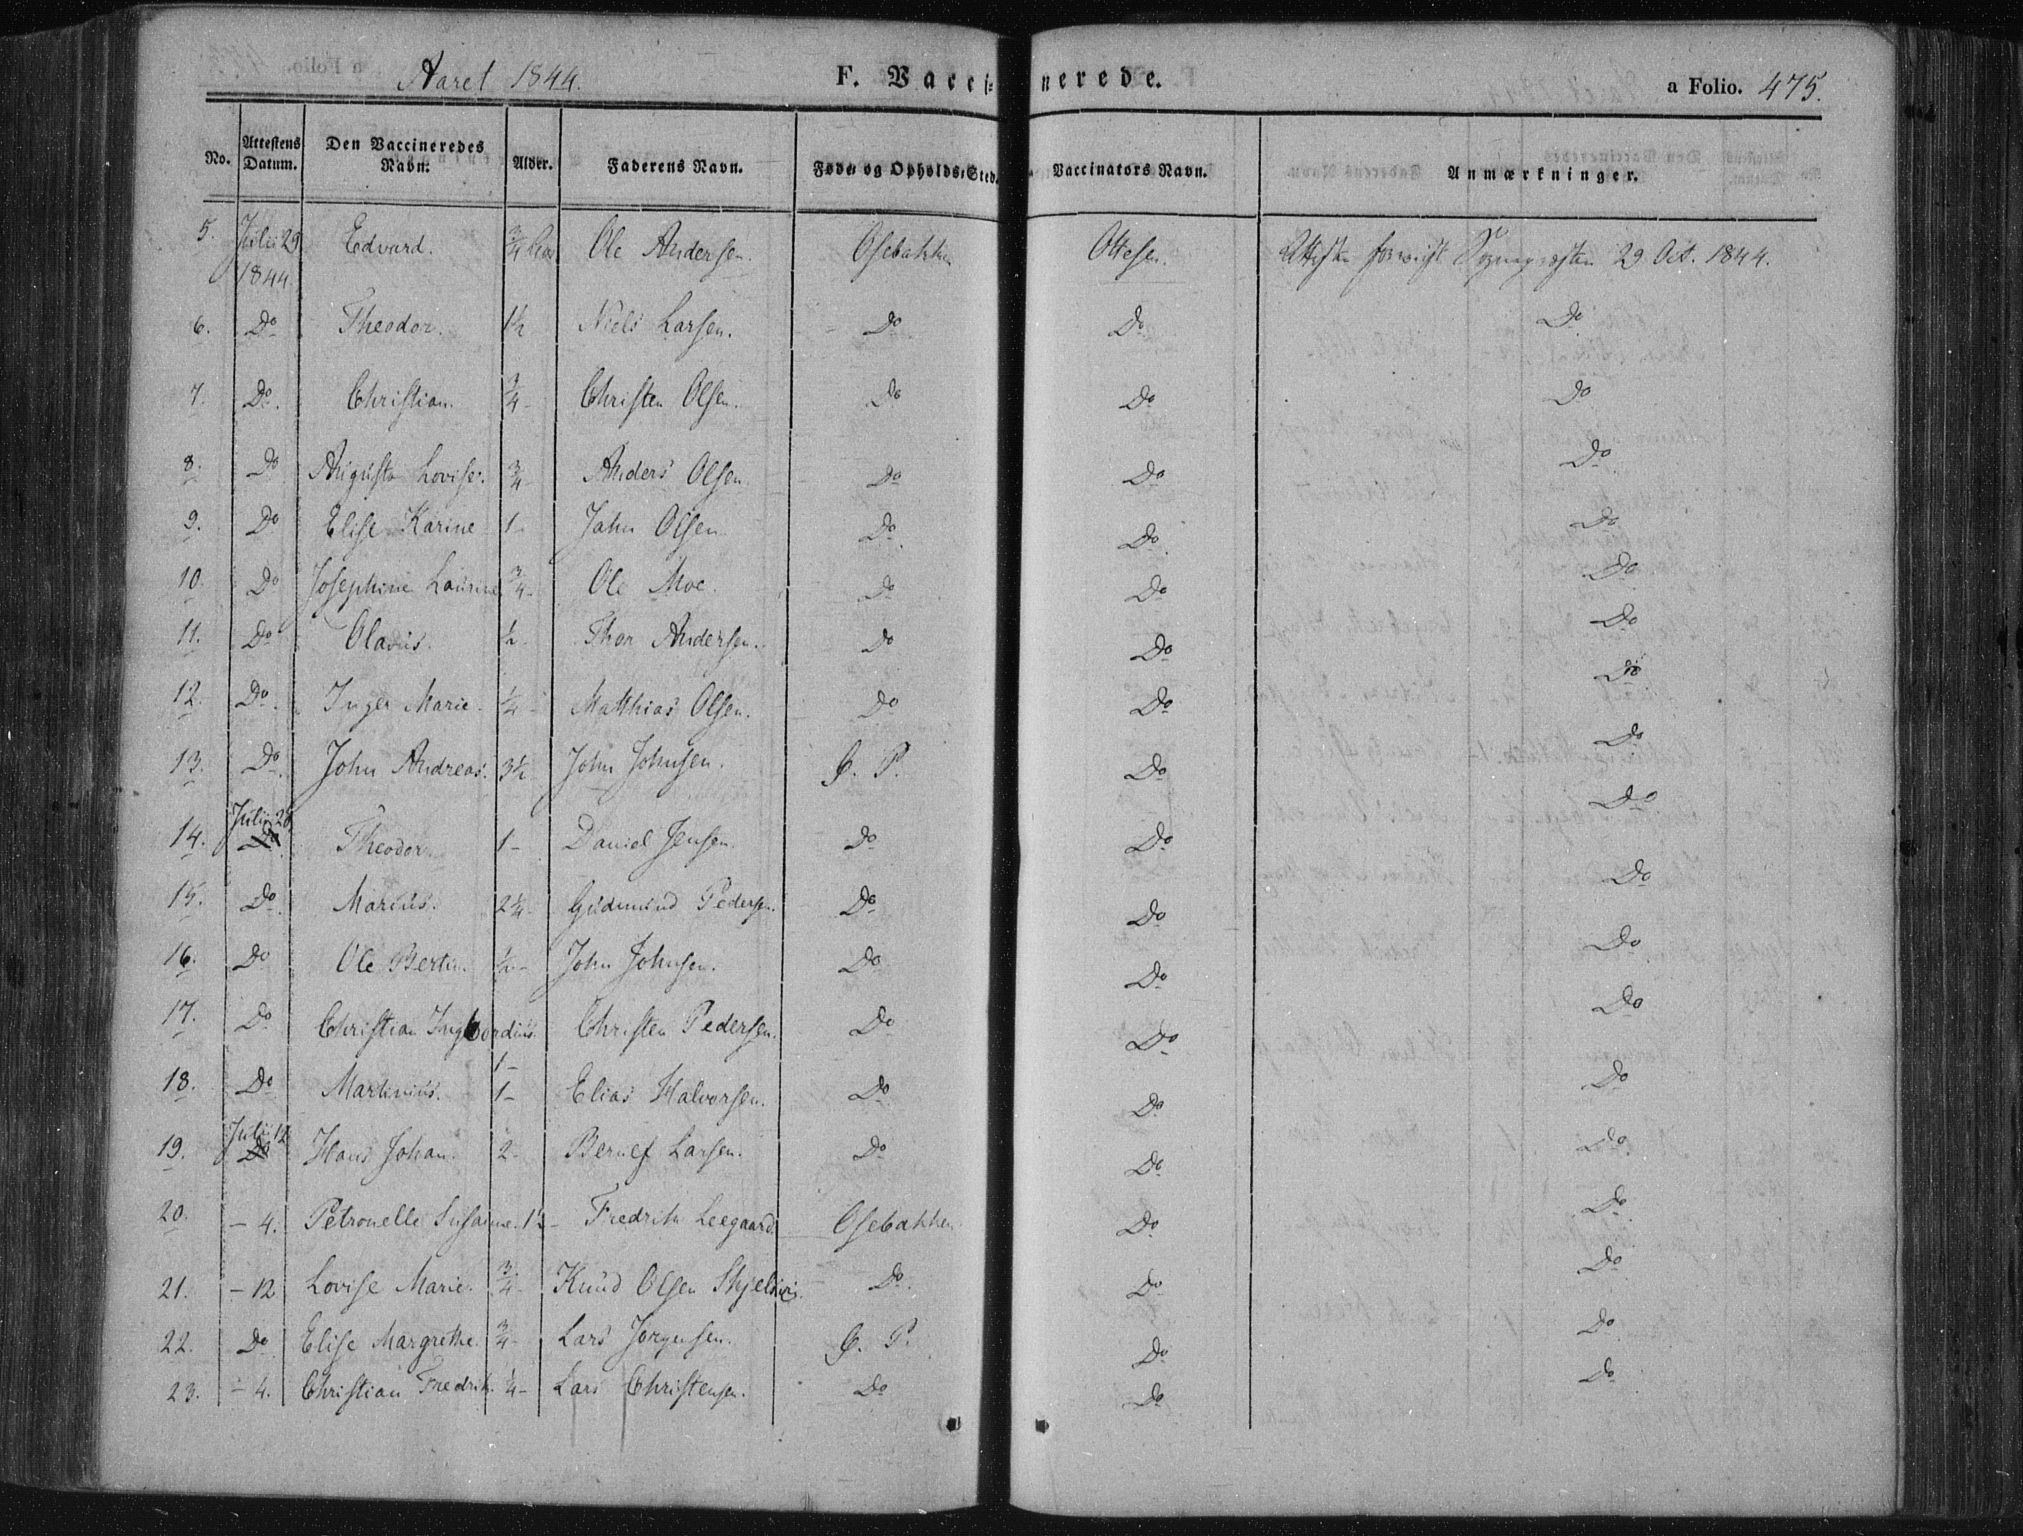 Aaret 1844. F. Vacci⸗nerede. a Folio. 475.
No. Attestens Datum. Den Vaccineredes Navn. Alder. Faderens Navn. Føde⸗ og Opholds⸗Sted. Vaccinators Navn. Anmærkninger.
5. Julii 29 1844. Edvard. 3/4 Aar Ole Andersen. Osebakken Ottesen. 29 Oct. 1844.
6. Do Theodor. 1½ Niels Larsen. Do Do Do
7. Do. Christian. 3/4 - Christen Olsen. Do Do Do
8. Do Augusta Lovise. 3/4 - Anders Olsen Do Do Do
9. Do Elise Karine 1 - John Olsen Do. Do Do
10. Do Josephine Laurine 3/4 - Ole Moe. Do Do Do
11. Do Olavus. ½ - Thor Andersen. Do Do Do
12. Do. Inger Marie. 1/4 - Matthias Olsen. Do Do Do
13. Do John Andreas. 3½ John Johnsen. G. P. Do Do
14. Julii 26 Theodor. 1 - Daniel Jensen. Do Do Do
15. Do. Marius. 2 1/4 - Gudmund Pedersen. Do Do Do
16. Do Ole Bertin. ½ - John Johnsen. Do Do Do
17. Do Christian Ingbordius. 1 - Christen Pedersen. Do Do Do
18. Do Martinius. 1 - Elias Halvorsen. Do Do Do
19. Julii 12 Hans Johan. 2 - Bernef Larsen. Do Do Do
20. - 4. Petronelle Susanne. 1½ - Fredrik Leegaard Osebakken Do Do
21. - 12 Lovise Marie. 3/4 - Knud Olsen Do. Do Do
22. Do Elise Margrethe. 3/4 - Lars Jørgensen. G. P. Do Do
23. - 4. Christian Fredrik. 1/4 - Lars Christensen. Do Do Do